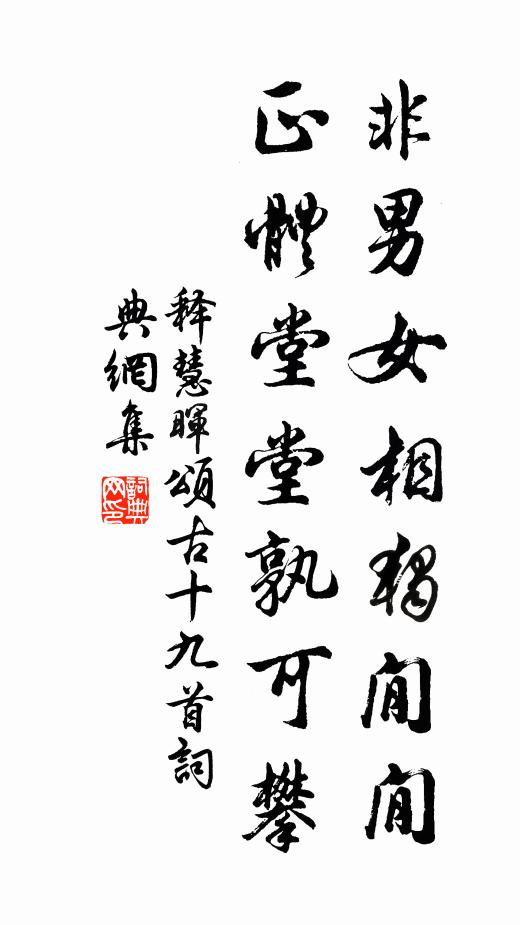 非男女相獨閒閒
正體堂堂孰可攀
释慧暉頌古十九首詞
典網集
詞典网印